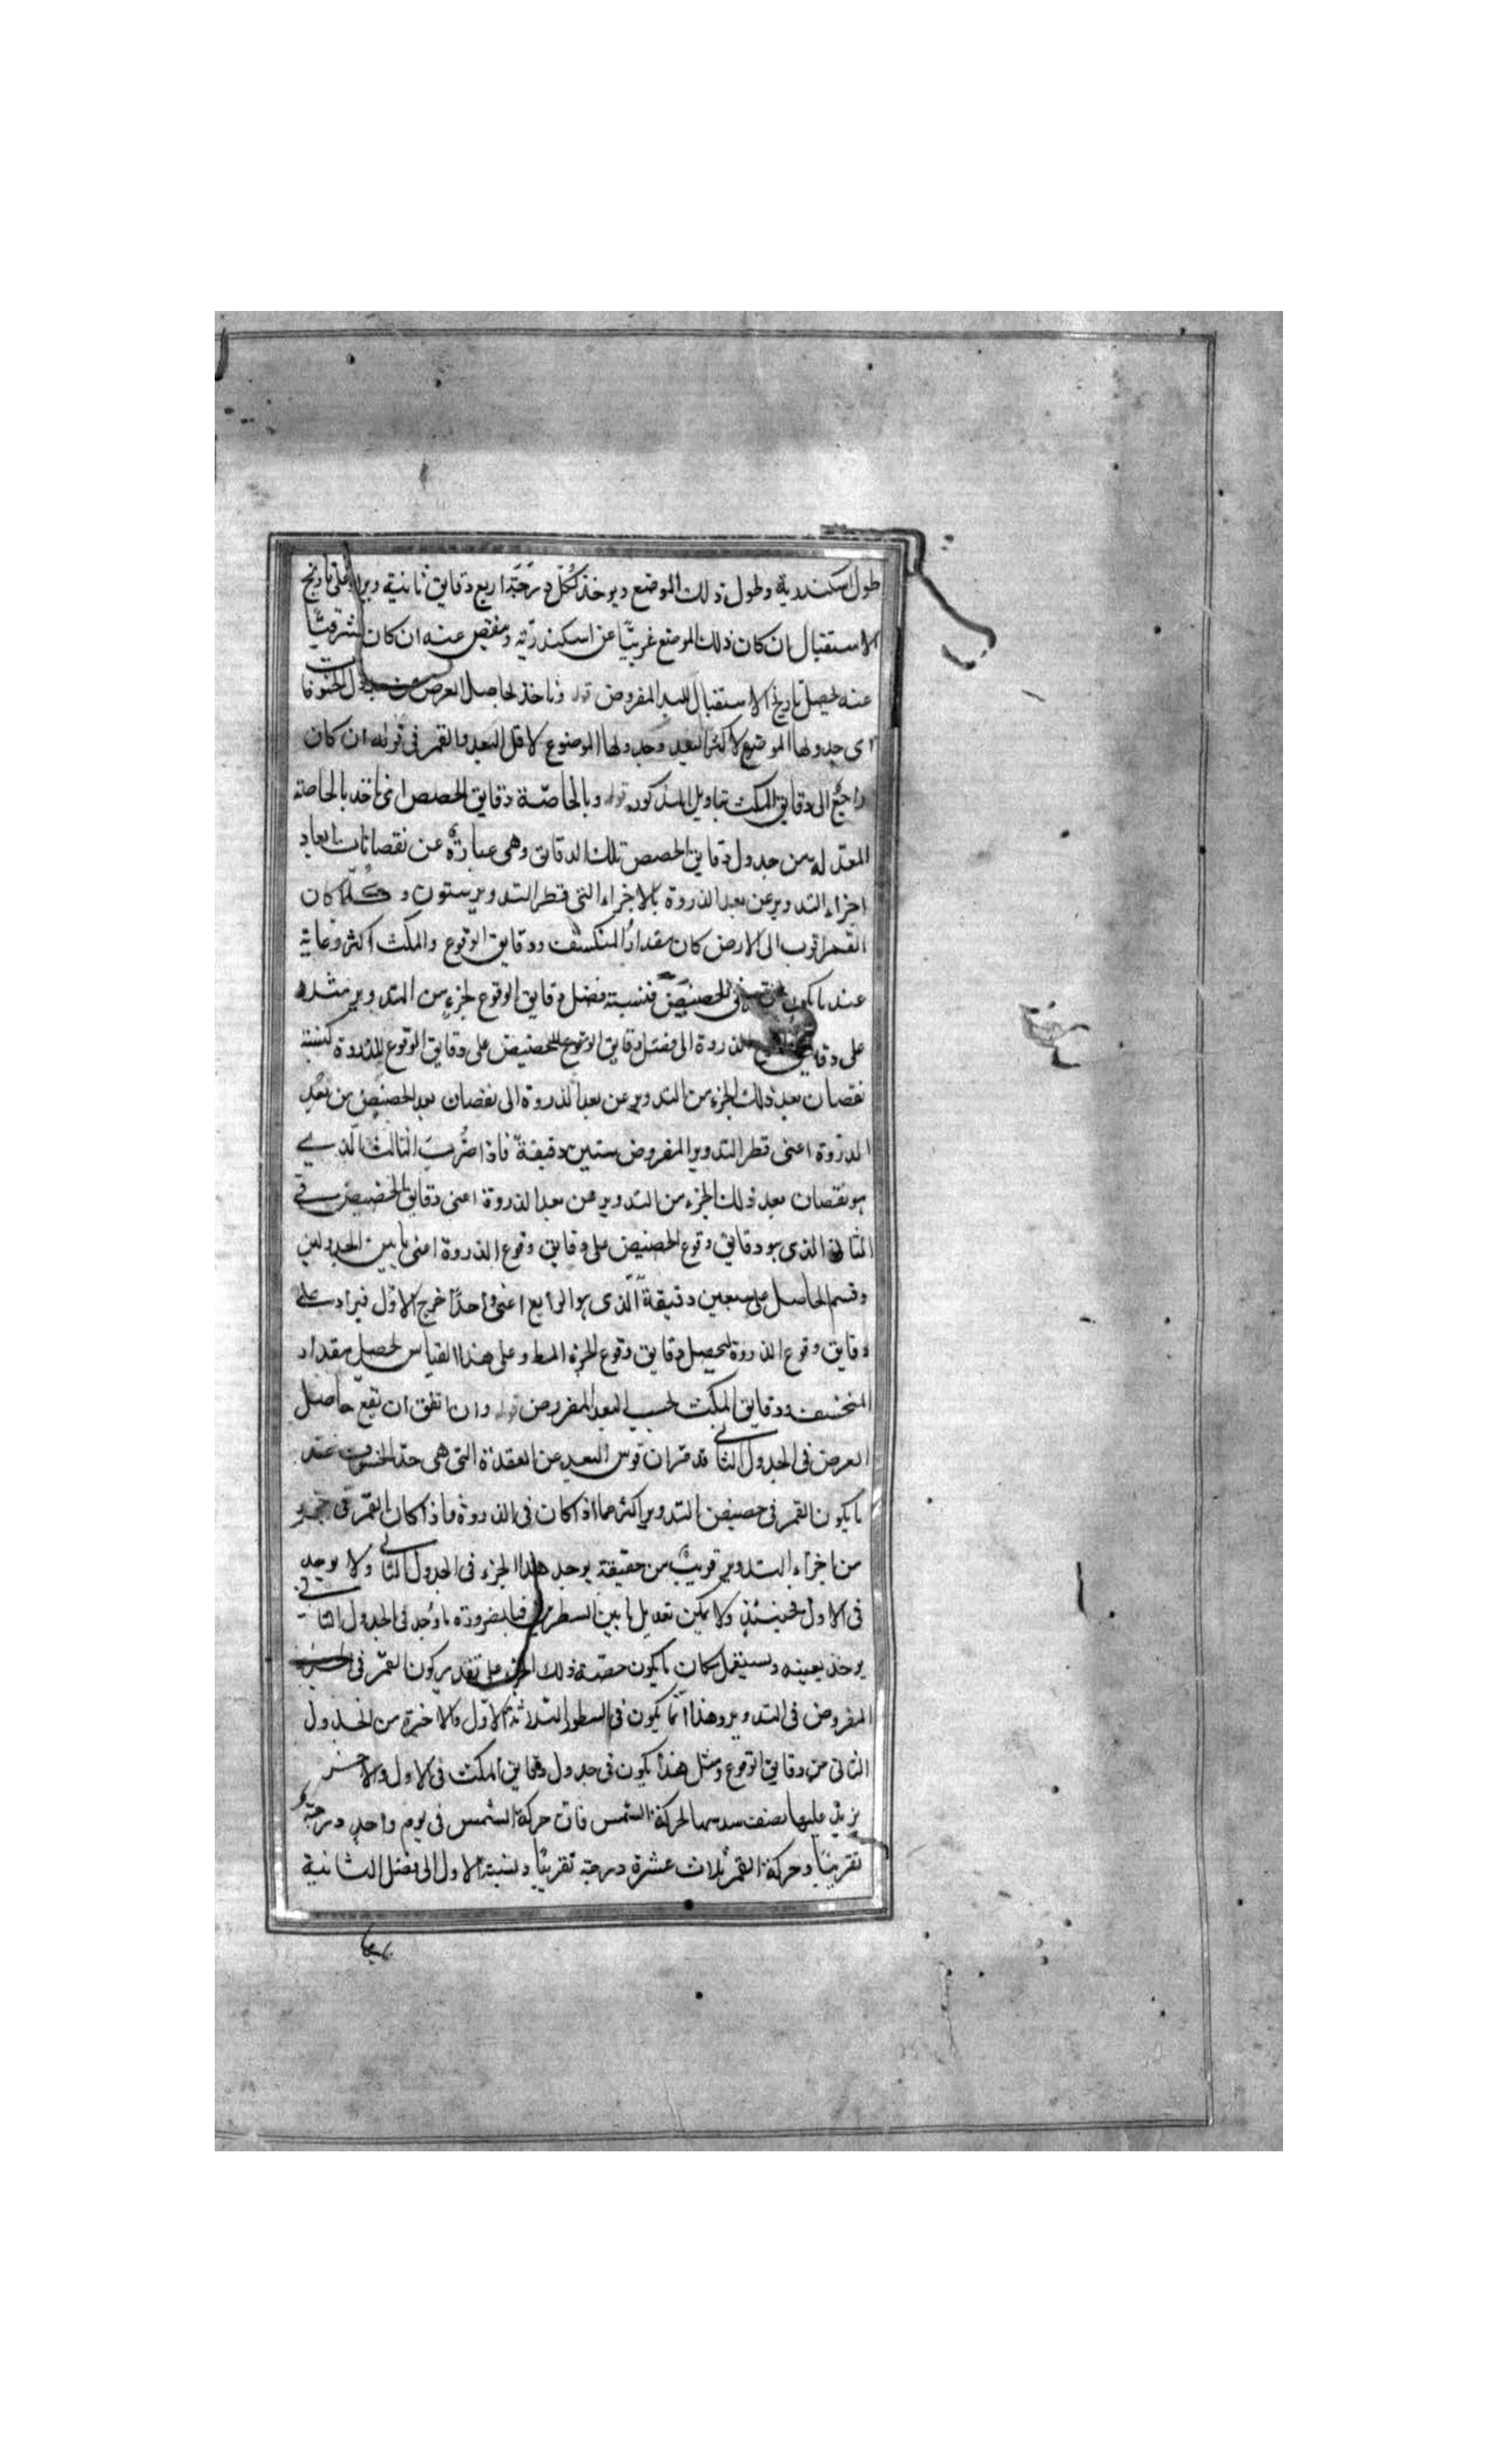 طول اسكندرية وطول ذلك الموضع ويوخذ لكل درجة اربع دقايق ثانية ويزاد على تاريخ
الاستقبال ان كان ذلك الموضع غربيا عن اسكندرية وينقص عنه ان كان شرقيا
عنه ليحصل تاريخ الاستقبال للبلد المفروض قوله وناخذ لحاصل العرض من جداول الخسوفات
اى جدولها الموضوع لاكثر البعد وجدولها الموضوع لاقل البعد والقمر فى قوله ان كان
راجع الى دقايق المكث بتاويل المذكور قوله وبالخاصة دقايق الحصص اى ناخذ بالخاصة
المعدلة من جدول دقايق الحصص تلك الدقايق وهى عبارة عن نقصانات ابعاد
اجزاء التدوير عن بعد الذروة بالاجزاء التى قطر التدوير ستون وكلما كان
القمر اقرب الى الارض كان مقدار المنكسف ودقايق الوقوع والمكث اكثر وغاية
عند ما يكون فى الحضيض فنسبة فضل دقايق الوقوع لجزء من التدوير مثلا
على دقايق الذروة الى فضل دقايق الوقوع للحضيض على دقايق الوقوع للذروة كنسبة
نقصان بعد ذلك الجزء من التدوير عن بعد الذروة الى نقصان بعد الحضيض من بعد
الذروة اعنى قطر التدوير المفروض ستين دقيقة فاذا ضرب الثالث الذى
هو نقصان بعد ذلك الجزء من التدوير عن بعد الذروة اعنى دقايق الحضيض فى
الثانى الذى هو دقايق وقوع الحضيض على دقايق وقوع الذروة اعنى ما بين الجدولين
وقسم الحاصل على ستين دقيقة الذى هو الرابع اعنى واحدا خرج الاول فيزاد على
دقايق وقوع الذروة ليحصل دقايق وقوع الجزء المط وعلى هذا القياس يحصل مقدار
المنخسف ودقايق المكث بحسب البعد المفروض قوله وان اتفق ان تقع حاصل
العرض فى الجدول الثانى قد مر ان قوس البعد عن العقدة التى هى حد الخسوف عند
ما يكون القمر فى حضيض التدوير اكثر مما اذا كان فى الذروة فاذا كان القمر فى جزء
من اجزاء التدوير قريب من حقيقة يوجد هذا الجزء فى الجدول الثانى ولا يوجد
فى الاول فحينئذ ولا يمكن تعديل ما بين السطرين فبالضرورة ما وجد فى الجدول الثانى
يوخذ بعينه ويستعمل مكان ما يكون حصة ذلك الجزء على تقدير كون القمر فى الجزء
المفروض فى التدوير وهذا انما يكون فى السطور الثلاثة الاول والاخيرة من الجدول
الثانى من دقايق الوقوع ومثل هذا يكون فى جدول دقايق المكث فى الاول والاخر
يزيد عليها نصف سدسها لحركة الشمس فان حركة الشمس فى يوم واحد درجة
تقريبا وحركة القمر ثلاث عشرة درجة تقريبا ونسبة الاول الى فضل الثانية